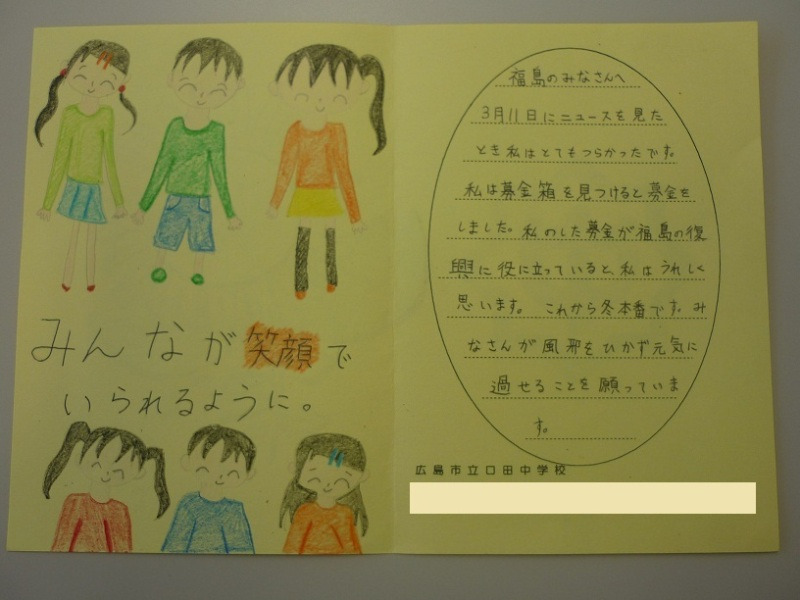 みんなが笑顔で
いられるように。
福島のみなさんへ
3月11日にニュースを見た
とき私はとてもつらかったです。
私は募金箱を見つけると募金を
しました。私のした募金が福島の復
興に役に立っていると、私はうれしく
思います。これから冬本番です。み
なさんが風邪をひかず元気に
過せることを願っていま
す。
広島市立口田中学校